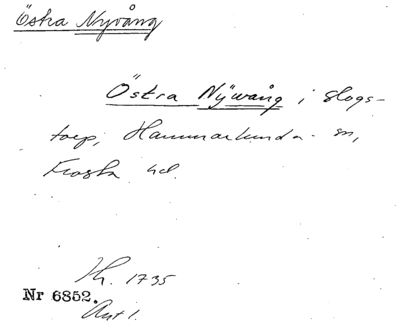 Östra Nyvång
Östra Nÿwång i Slogs-
torp, Hammarlunda sn,
Frosta hd.
Hr. 1735
Nr 6852.
Art 1.